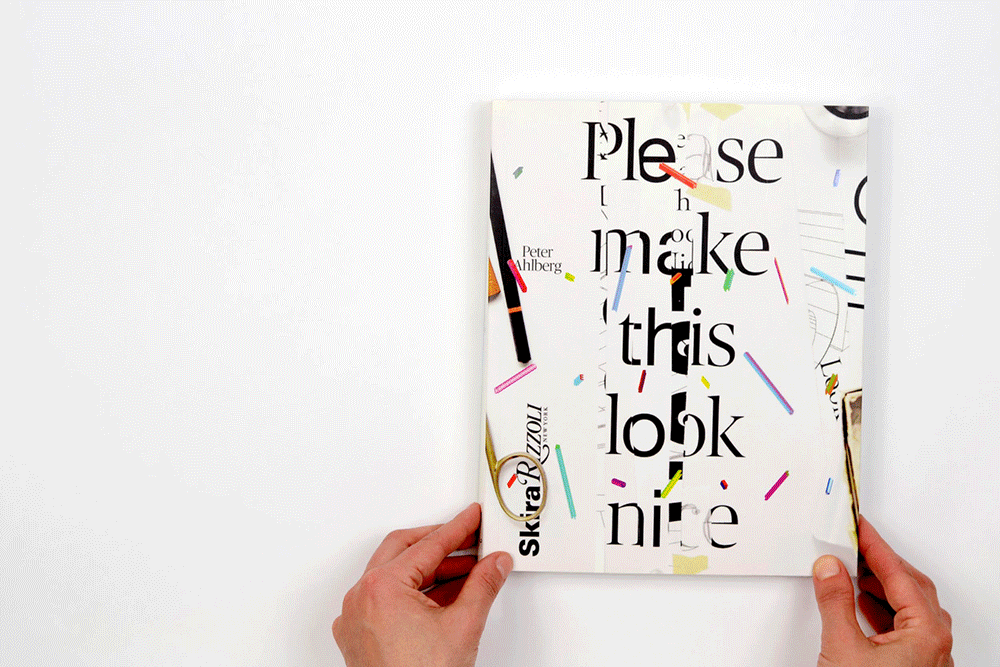 Please
make
this
look
nice
Peter
Ahlberg
Skira RIZZOLI
NEW YORK